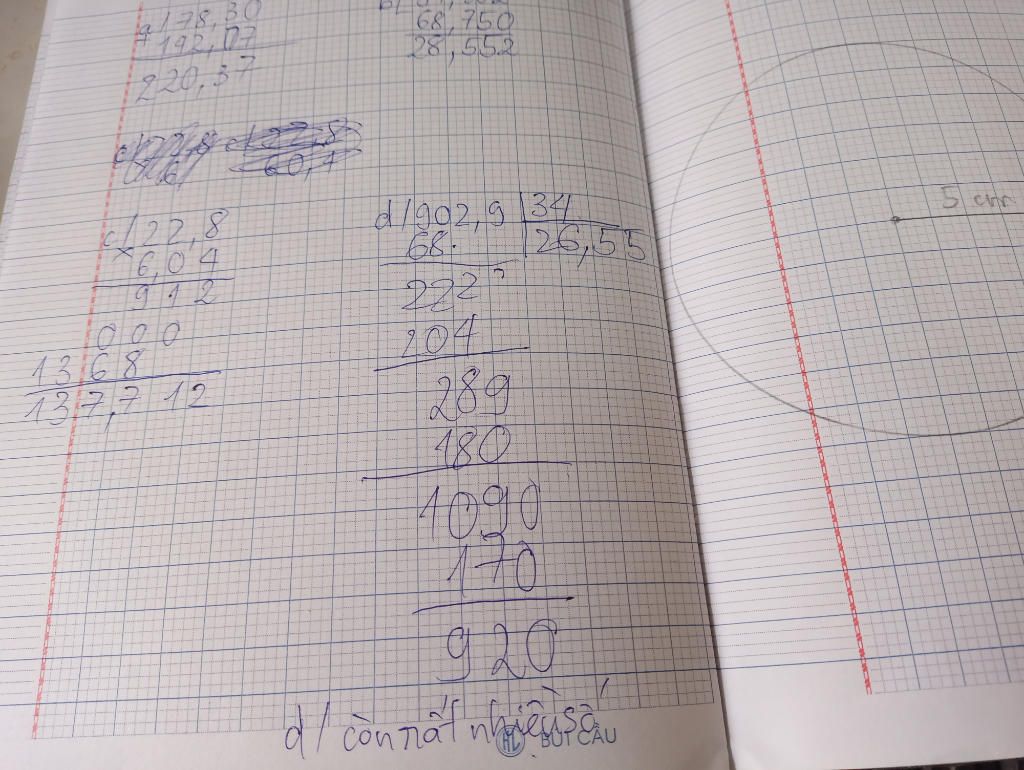 a/178,30
+ 192,07
220,37
68,750
28,552
c/22,8
× 6,04
912
000
1368
137,712
d/902,9 34
68 26,55
222
204
289
180
1090
170
920
d/ còn rất nhiều số
BÚT CẦU
5 cm